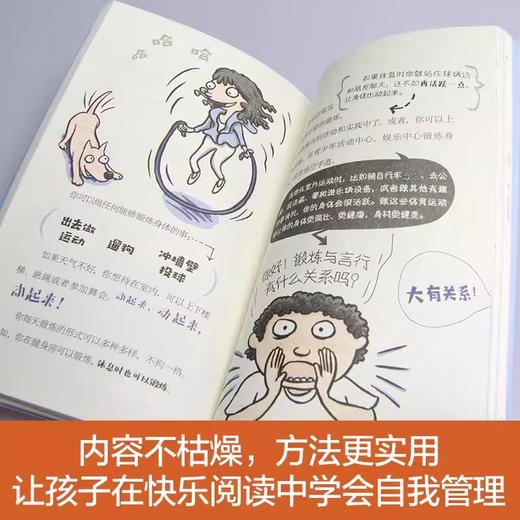 哈哈
哈
你可以做任何能够锻炼身体的事：
出去做
运动
遛狗
冲墙壁
投球
如果天气不好，你想待在室内，可以上下楼
梯、跳绳或者参加舞会，动起来，动起来，
动起来！
你每天锻炼的形式可以多种多样，不拘一格。
如，你在健身房可以锻炼，休息时也可以锻炼。
如果休息时你就站在球场边
和朋友聊天，还不如再活跃一点，
让身体也动起来。
到活动和实践中了，或者，你可以上
青少年活动中心、娱乐中心锻炼身
在室外运动时，比如骑自行车、去公
做这些体育运动
你的身体会很活跃。
你的身体会更强壮、更健康，身材更健美。
你好！锻炼与言行
有什么关系吗？
大有关系！
内容不枯燥，方法更实用
让孩子在快乐阅读中学会自我管理